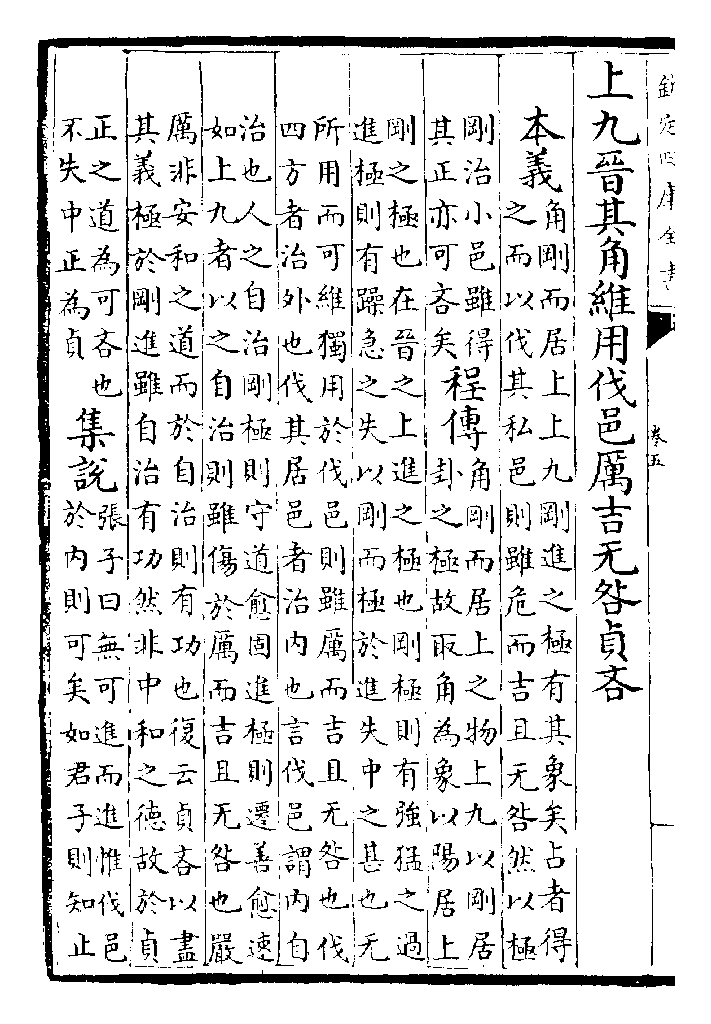 欽定四庫全書
卷五
上九晉其角維用伐邑厲吉无咎貞吝
本義
角剛而居上上九剛進之極有其象矣占者得
之而以伐其私邑則雖危而吉且无咎然以極
剛治小邑雖得
其正亦可吝矣
程傳
角剛而居上之物上九以剛居
卦之極故取角為象以陽居上
剛之極也在晉之上進之極也剛極則有強猛之過
進極則有躁急之失以剛而極於進失中之甚也无
所用而可維獨用於伐邑則雖厲而吉且无咎也伐
四方者治外也伐其居邑者治內也言伐邑謂內自
治也人之自治剛極則守道愈固進極則遷善愈速
如上九者以之自治則雖傷於厲而吉且无咎也嚴
厲非安和之道而於自治則有功也復云貞吝以盡
其義極於剛進雖自治有功然非中和之德故於貞
正之道為可吝也
不失中正為貞
集說
張子曰無可進而進惟伐邑
於內則可矣如君子則知止